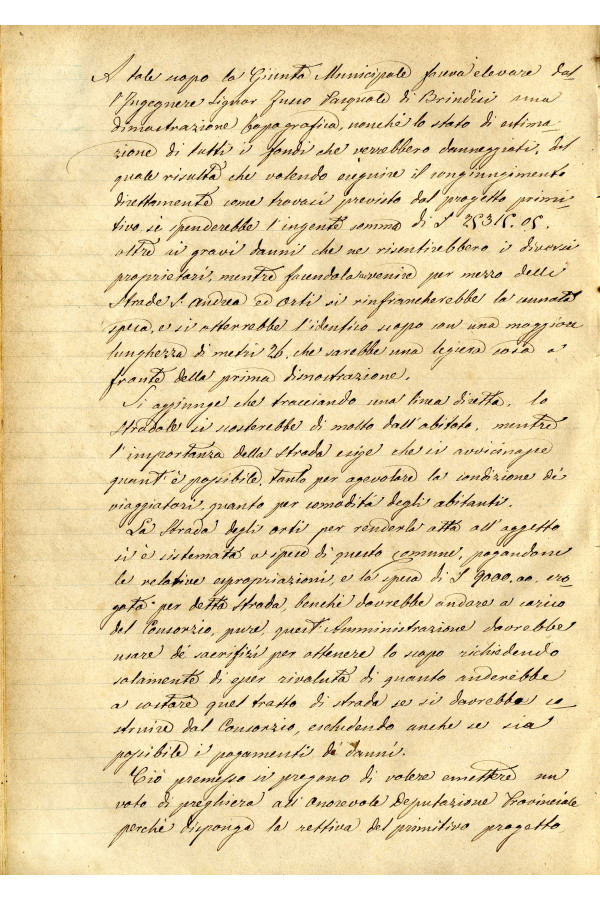 A tale scopo la Giunta Municipale faceva elevare dal-
l'Ingegnere Signor Zusco Pasquale di Brindisi una
dimostrazione topografica, nonchè lo stato di estima-
zione di tutti i fondi che verrebbero danneggiati. Dal
quale risulta che volendo eseguire il congiungimento
direttamente come trovasi previsto dal progetto primi-
tivo, si spenderebbe l'ingente somma di £
oltre ai gravi danni che ne risentirebbero i diversi
proprietari, mentre facendola avvenire per mezzo delle
Strade S. Andrea ed Orti si rinfrancherebbe la cennata
spesa, e si otterrebbe l'identico scopo con una maggiore
lunghezza di metri 26. che sarebbe una legiera cosa a
fronte della prima dimostrazione.
Si aggiunge che tracciando una linea diretta, lo
stradale si scosterebbe di molto dall'abitato, mentre
l'importanza della strada esige che si avvicinasse
quant'è possibile, tanto per agevolare la condizione dè
viaggiatori, quanto per comodità degli abitanti.
La Strada degli orti per renderla atta all'oggetto
si è sistemata a spese di questo comune, pagandone
le relative espropriazioni, e la spesa di £ 9000.00. ero-
gata per detta strada, benchè dovrebbe andare a carico
del Consorzio, pure, quest'Amministrazione dovrebbe
usare dè sacrifizi per ottenere lo scopo richiedendo
solamente di esser rivaluta di quanto anderebbe
a costare quel tratto di strada se si dovrebbe co-
struire dal Consorzio, escludendo anche se sia
possibile i pagamenti dè danni.
Ciò premesso si pregano di volere emettere un
voto di preghiera all'Onorevole Deputazione Provinciale
perchè disponga la rettiva del primitivo progetto